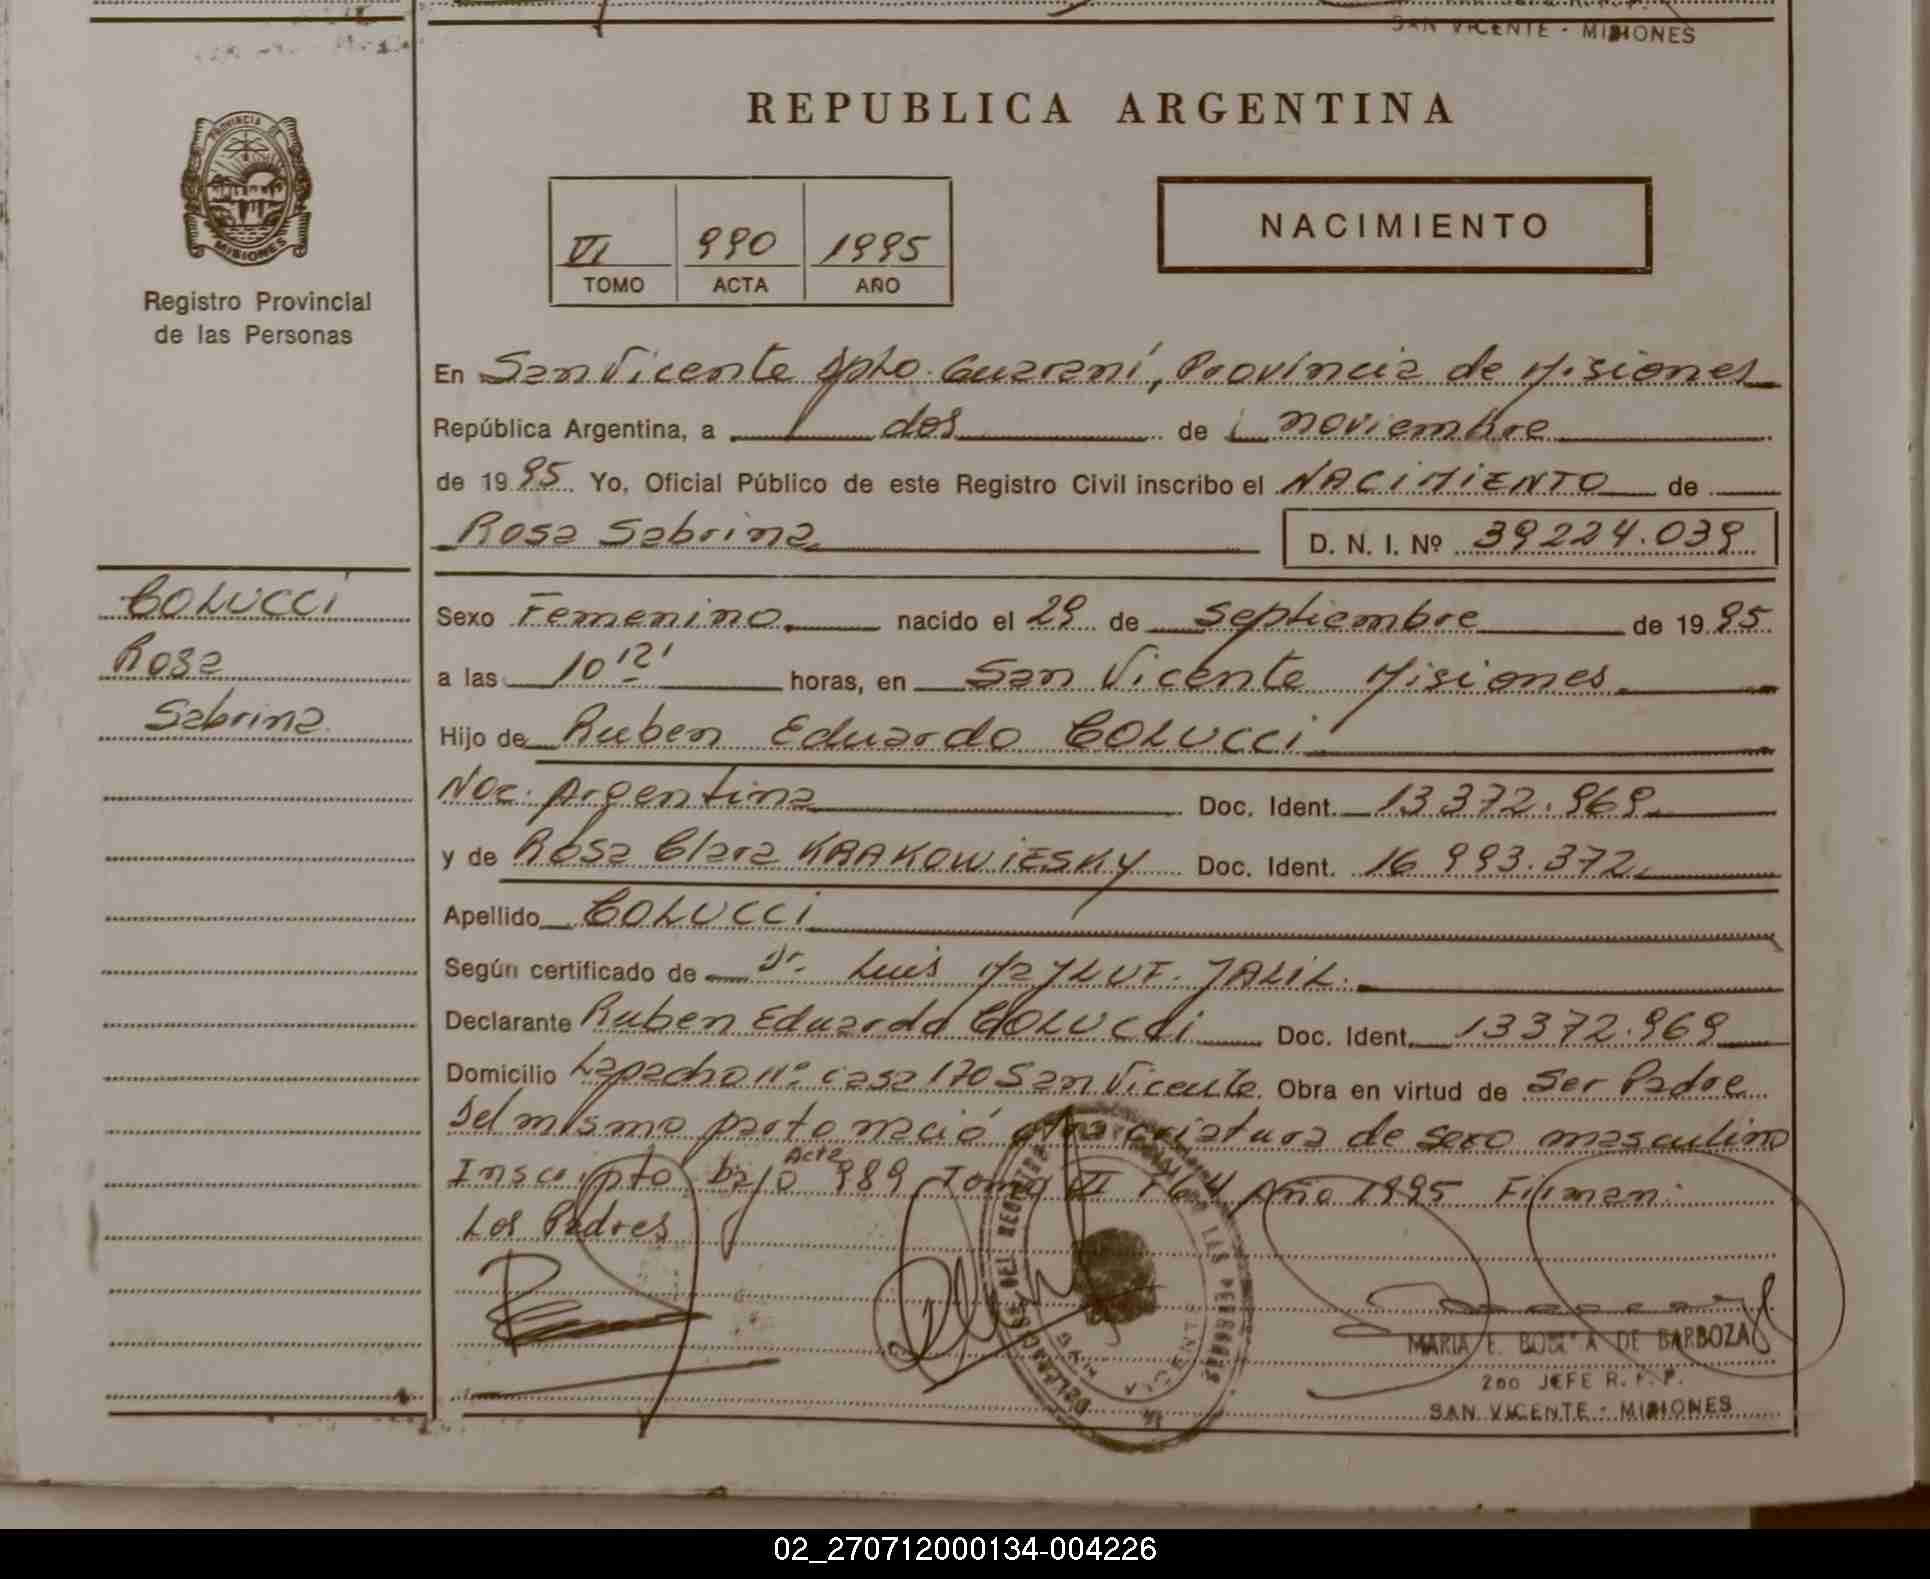 SAN VICENTE - MISIONES
REPUBLICA ARGENTINA
PROVINCIA DE
MISIONES
Registro Provincial
de las Personas
VI 990 1995
TOMO ACTA AÑO
NACIMIENTO
En San Vicente Dpto. Guaraní, Provincia de Misiones
República Argentina, a dos de noviembre
de 1995. Yo, Oficial Público de este Registro Civil inscribo el NACIMIENTO de
Rosa Sabrina D. N. I. Nº 39224.039
COLUCCI
Rosa
Sabrina
Sexo Femenino nacido el 29 de septiembre de 1995.
a las 10 12' horas, en San Vicente Misiones
Hijo de Ruben Eduardo COLUCCI
Nac. Argentina Doc. Ident. 13372.969
y de Rosa Clara KRAKOWIESKY Doc. Ident. 16 993.372
Apellido COLUCCI
Según certificado de Dr. Luis JALIL.
Declarante Ruben Eduardo COLUCCI Doc. Ident. 13372.969
Domicilio Lapacho nº casa 170 San Vicente. Obra en virtud de Ser Padre
Del mismo parto nació otra criatura de sexo masculino
Inscripto bajo Acta 989 Tomo VI Año 1995 Firman:
Los Padres
DELEGACION DEL REGISTRO DE LAS PERSONAS
MARIA E. DE BARBOZA
2do JEFE R. P. P.
SAN VICENTE - MISIONES
02_270712000134-004226